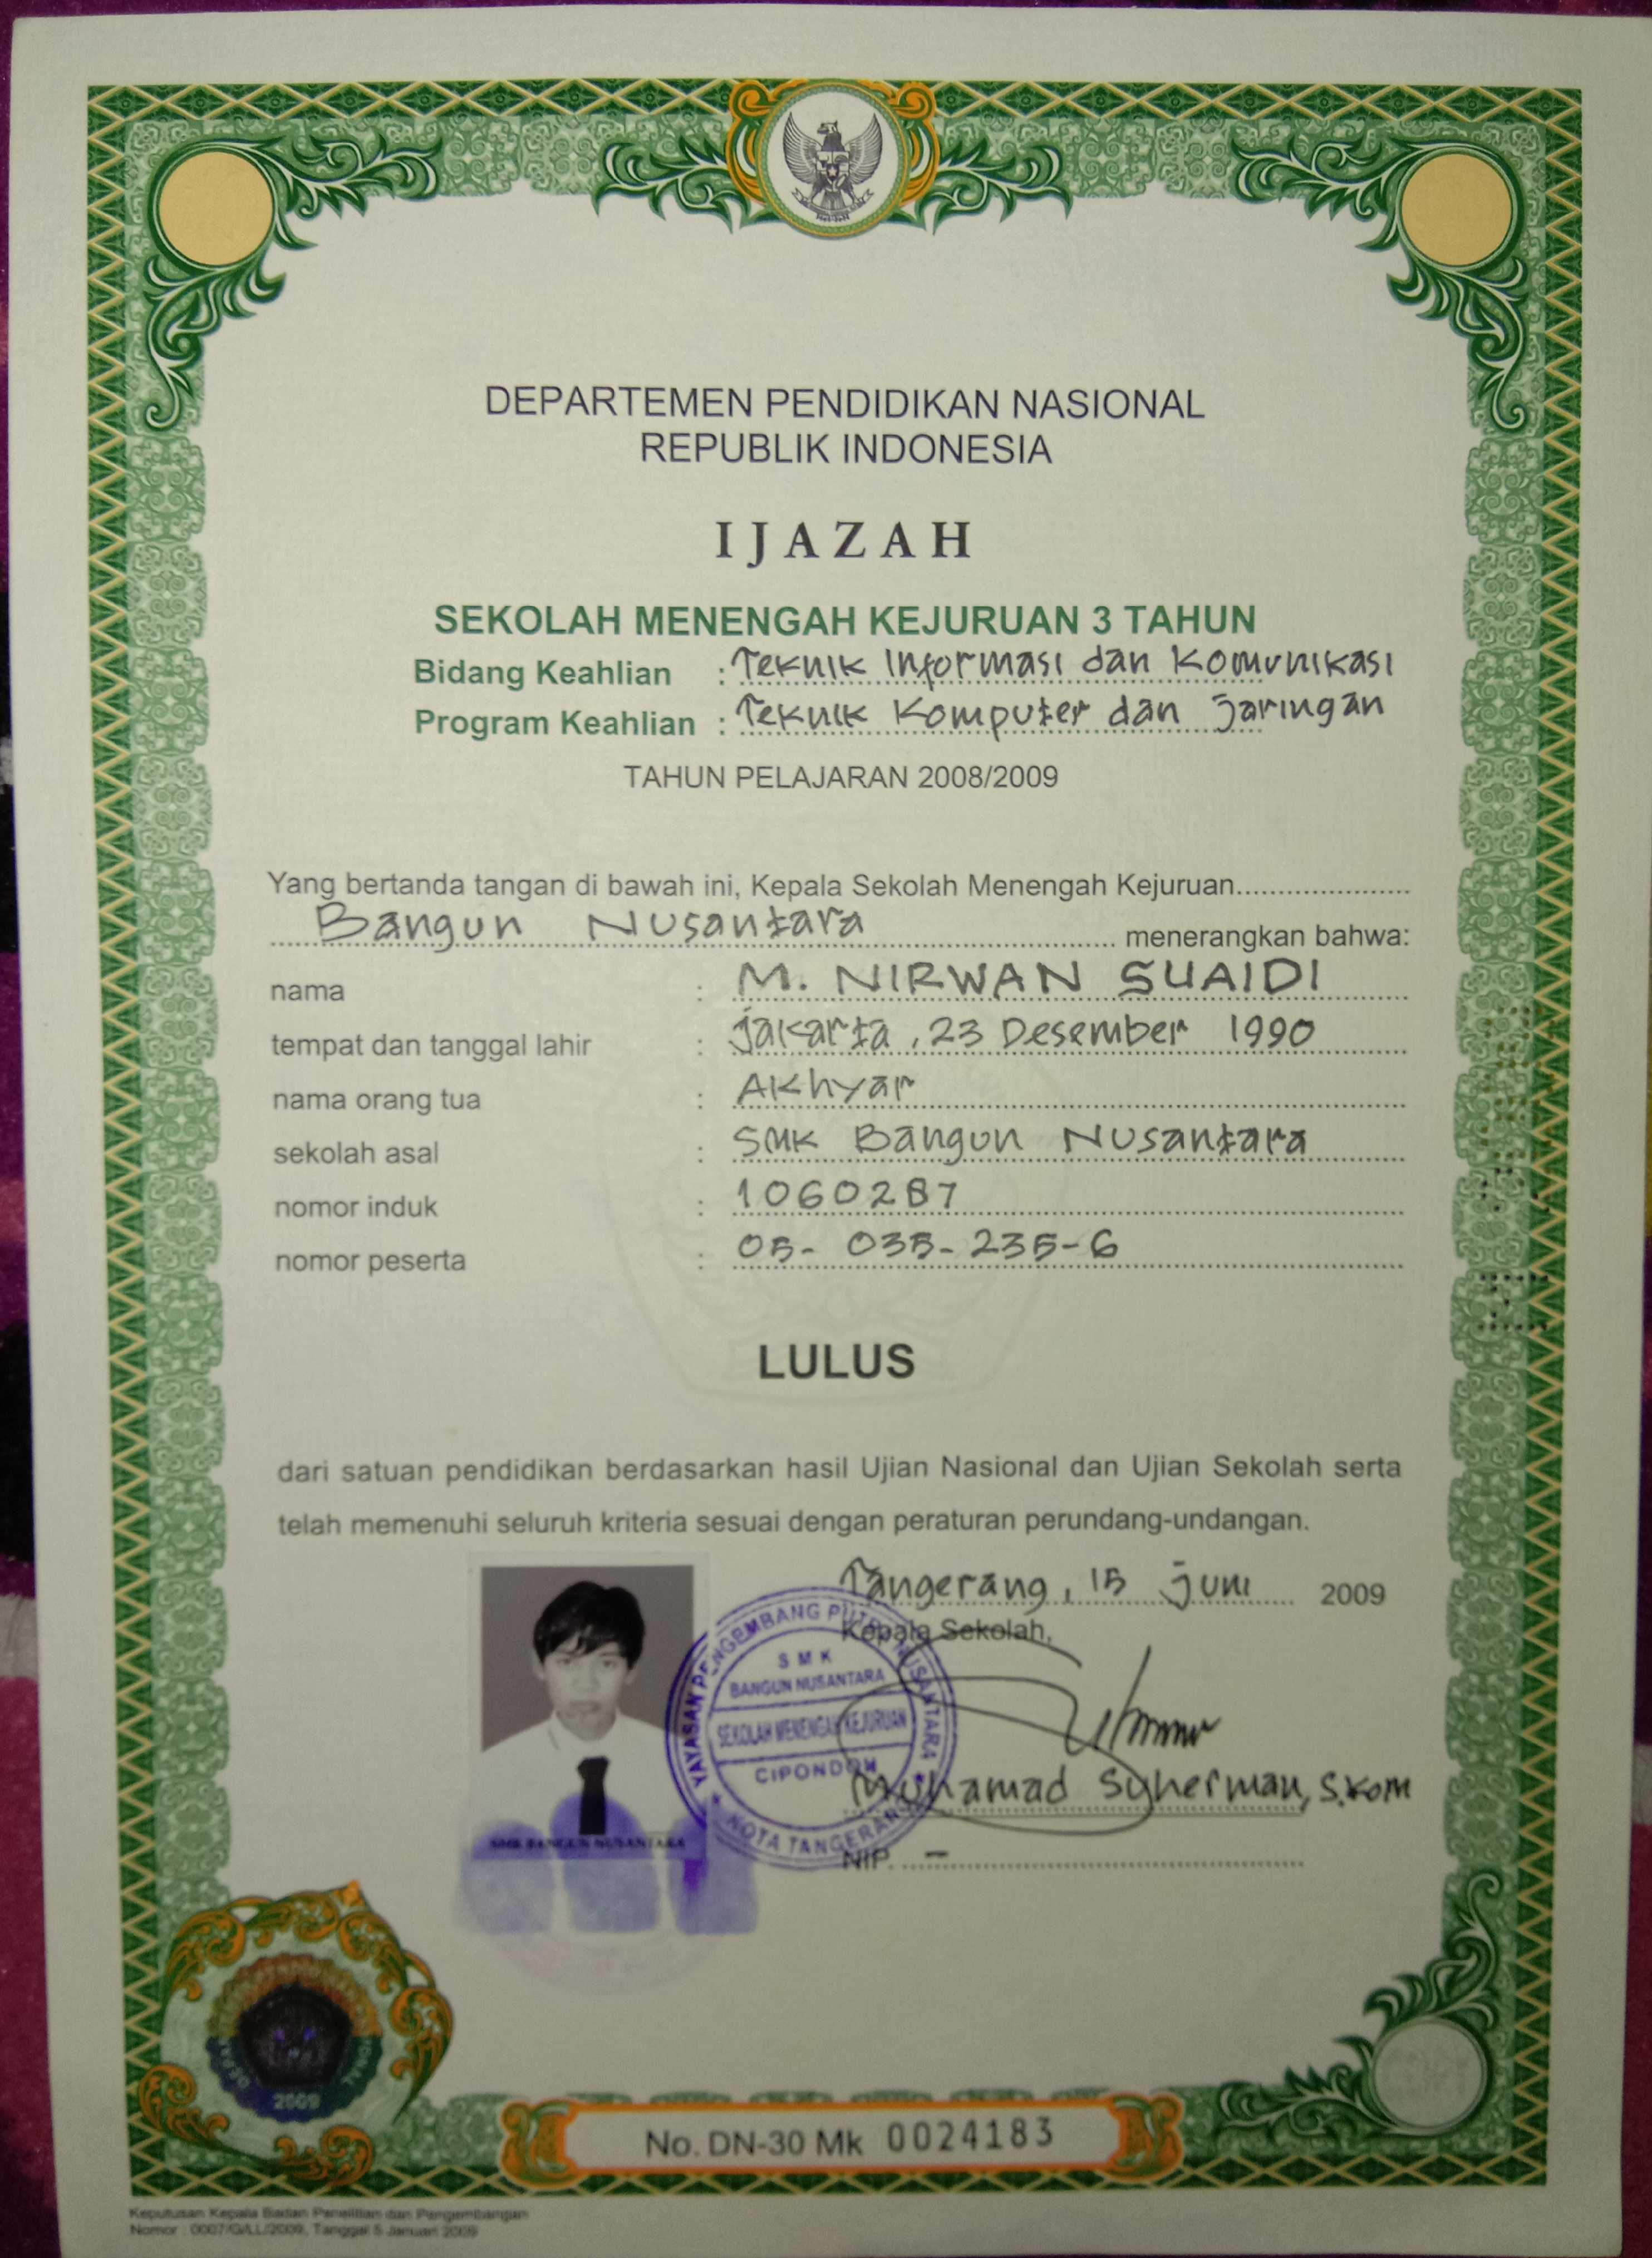 DEPARTEMEN PENDIDIKAN NASIONAL
REPUBLIK INDONESIA
IJAZAH
SEKOLAH MENENGAH KEJURUAN 3 TAHUN
Bidang Keahlian : Teknik Informasi dan Komunikasi
Program Keahlian : Teknik Komputer dan Jaringan
TAHUN PELAJARAN 2008/2009
Yang bertanda tangan di bawah ini, Kepala Sekolah Menengah Kejuruan
Bangun Nusantara menerangkan bahwa:
nama : M. NIRWAN SUAIDI
tempat dan tanggal lahir : Jakarta, 23 Desember 1990
nama orang tua : Akhyar
sekolah asal : SMK Bangun Nusantara
nomor induk : 1060287
nomor peserta : 05- 035- 235-6
LULUS
dari satuan pendidikan berdasarkan hasil Ujian Nasional dan Ujian Sekolah serta
telah memenuhi seluruh kriteria sesuai dengan peraturan perundang-undangan.
Tangerang, 15 Juni 2009
Kepala Sekolah,
YAYASAN PENGEMBANG PUTRA NUSANTARA
SMK
BANGUN NUSANTARA
SEKOLAH MENENGAH KEJURUAN
CIPONDOH
KOTA TANGERANG
Muhamad Suherman, S.Kom
SMK BANGUN NUSANTARA
NIP. -
2009
No. DN-30 Mk 0024183
Keputusan Kepala Badan Penelitian dan Pengembangan
Nomor : 0007/G/LL/2009, Tanggal 5 Januari 2009